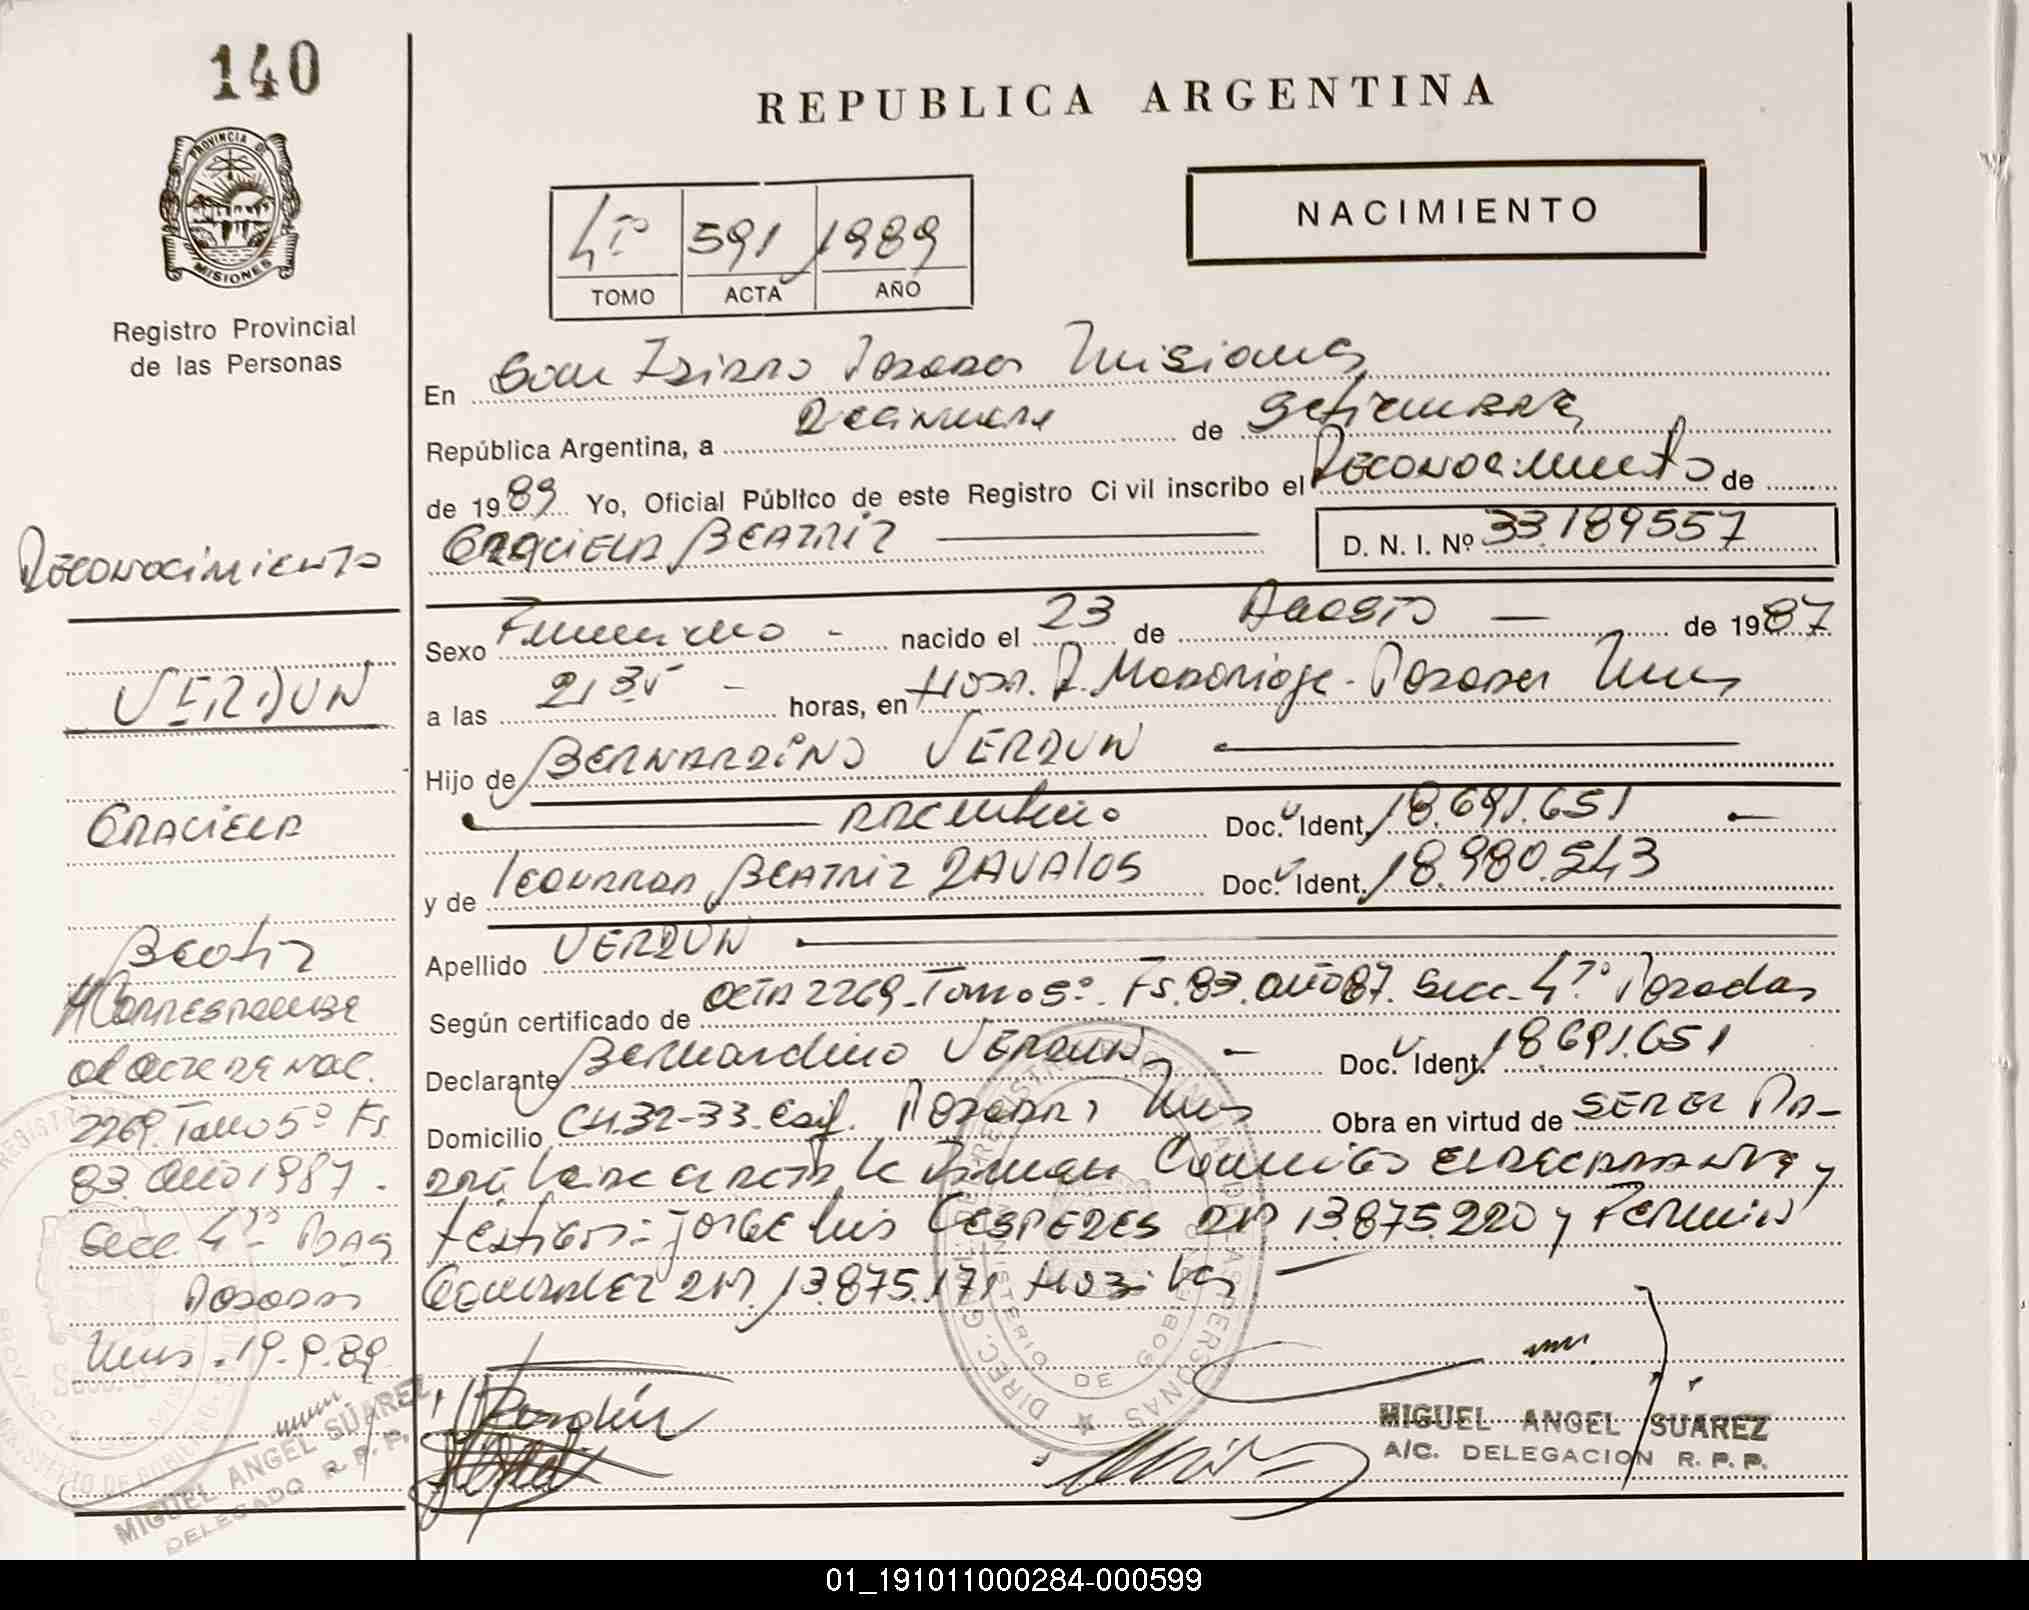 140
PROVINCIA DE
MISIONES
Registro Provincial
de las Personas
REPUBLICA ARGENTINA
NACIMIENTO
4º 591 1989
TOMO ACTA AÑO
En San Isidro Posadas Misiones
República Argentina, a Diecinueve de Setiembre
de 1989 Yo, Oficial Público de este Registro Civil inscribo el Reconocimiento de
GRACIELA BEATRIZ D. N. I. Nº 33.189557
Sexo Femenino - nacido el 23 de Agosto — de 1987
a las 21 35 - horas, en Hosp. R. Madariaga - Posadas Mnes
Hijo de BERNARDINO VERDUN
argentino Doc. Ident. 18.691.651 -
y de BEATRIZ ZAVALOS Doc. Ident. 18.980.543
Apellido VERDUN
Según certificado de acta 2269 - Tomo 5º - Fs. 83. año 87. Secc. 4º Posadas
Declarante Bernardino VERDUN - Doc. Ident. 18691.651
Domicilio CH. 32-33. Posadas Mnes Obra en virtud de SER EL PA-
DRE el acta la firman el declarante y
testigos: Jorge Luis CESPEDES DNI 13.875.220 y Fermin
GONZALEZ DNI. 13.875.171
MIGUEL ANGEL SUAREZ
A/C. DELEGACION R. P. P.
Reconocimiento
VERDUN
GRACIELA
Beatriz
Corresponde
al acta de nac.
2269. Tomo 5º Fs.
83. año 1987 -
Secc 4º
Posadas
Mnes. 19-9-89
MIGUEL ANGEL SUAREZ
DELEGADO R. P. P.
01_191011000284-000599